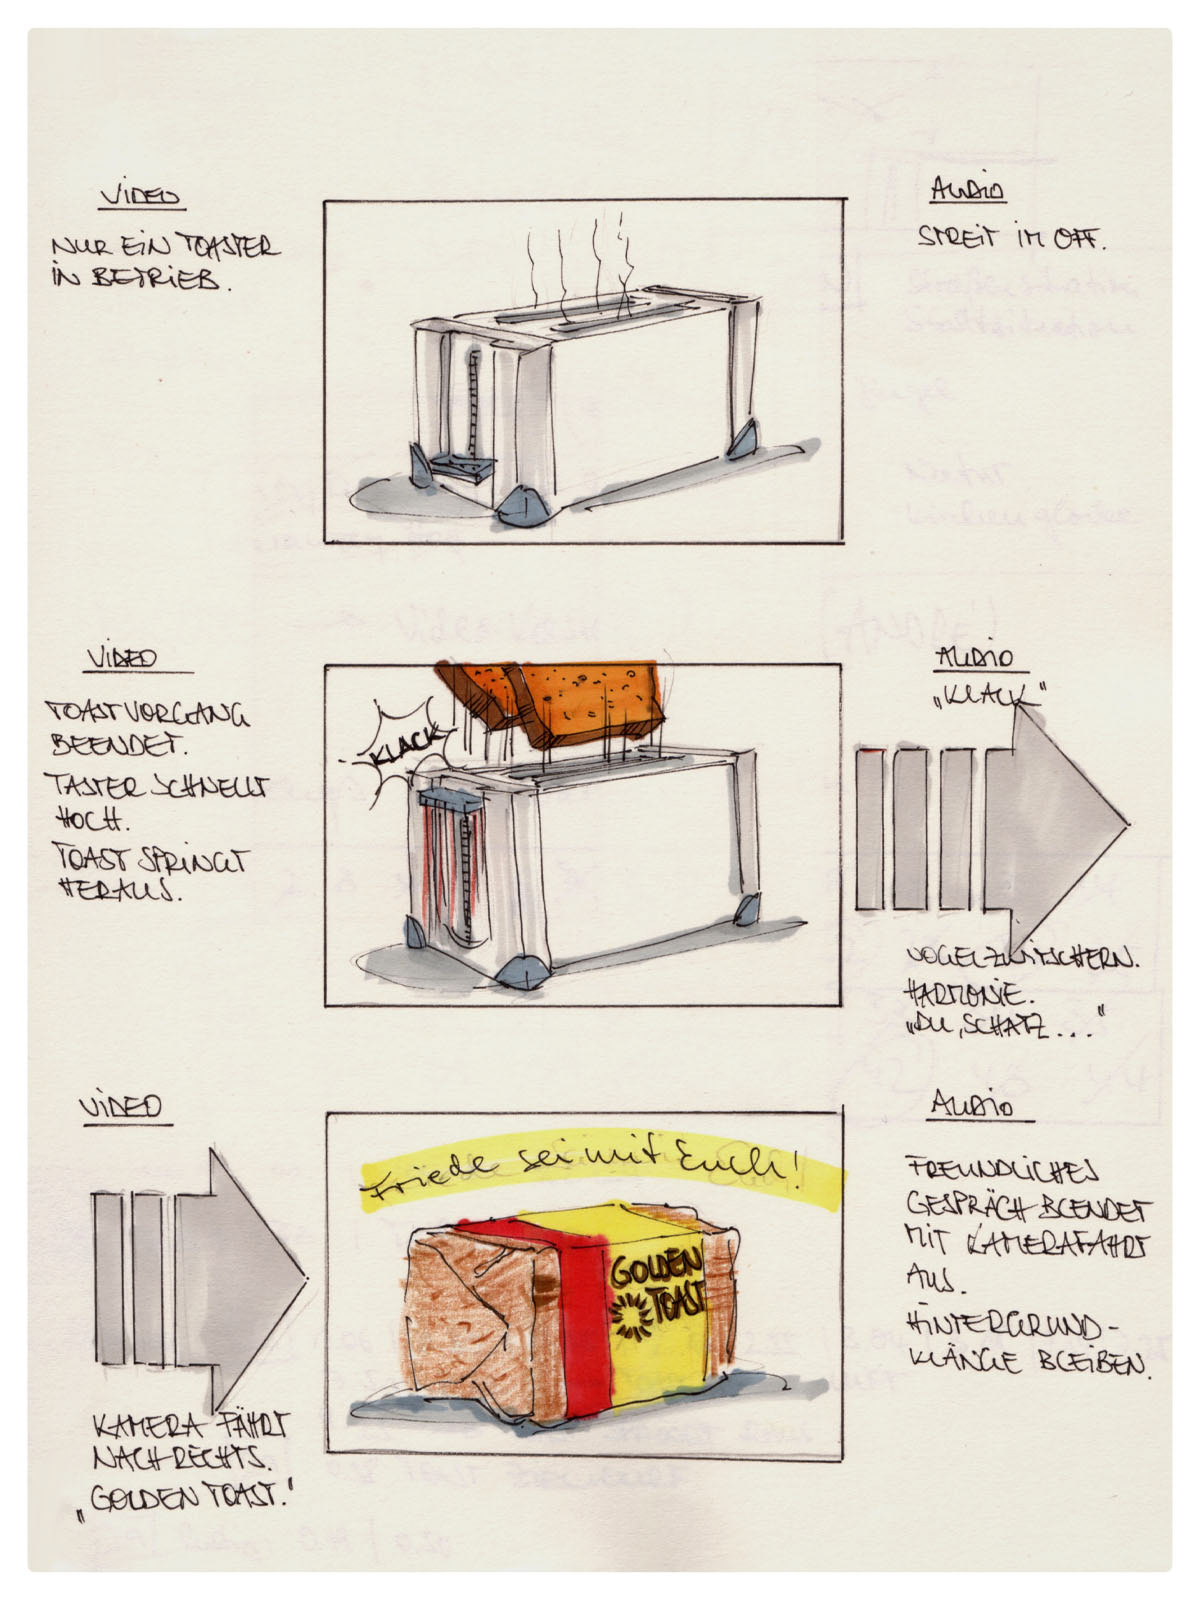 VIDEO
NUR EIN TOASTER
IN BETRIEB.
AUDIO
STREIT IM OFF.
VIDEO
TOASTVORGANG
BEENDET.
TASTER SCHNELLT
HOCH.
TOAST SPRINGT
HERAUS.
KLACK
AUDIO
„KLACK“
VOGELZWITSCHERN.
HARMONIE.
„DU, SCHATZ...“
VIDEO
KAMERA FÄHRT
NACH RECHTS.
„GOLDEN TOAST.“
Friede sei mit Euch!
GOLDEN
TOAST
AUDIO
FREUNDLICHES
GESPRÄCH BLENDET
MIT KAMERAFAHRT
AUS.
HINTERGRUND-
KLÄNGE BLEIBEN.